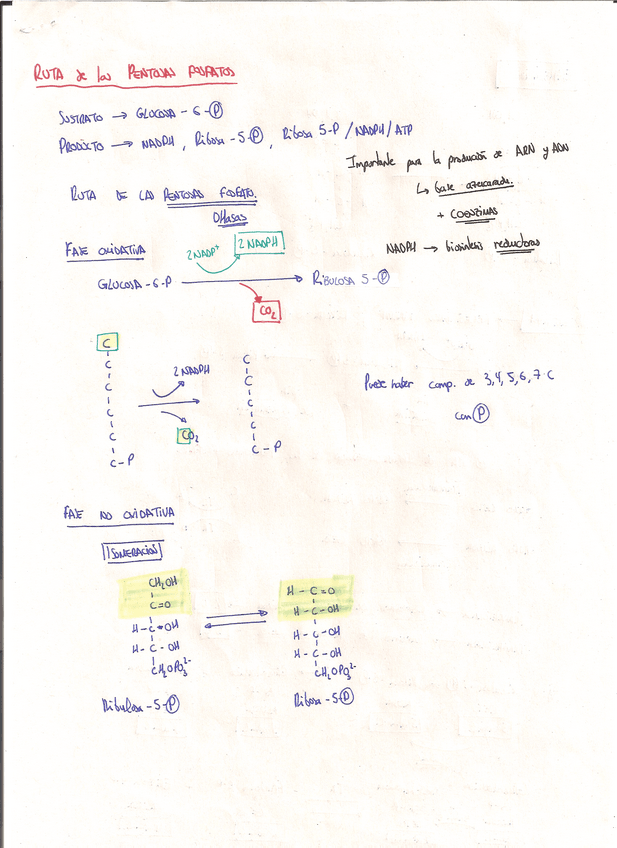 RUTA de las PENTOSAS FOSFATOS
SUSTRATO → GLUCOSA-6-P
PRODUCTO → NADPH, Ribosa-5-P, Ribosa 5-P/NADPH/ATP
Importante para la producción de ARN y ADN
↳ base azucarada.
+ COENZIMAS
NADPH → biosíntesis reductoras
RUTA DE LAS PENTOSAS FOSFATO.
DHasas
FASE OXIDATIVA
2 NADP+ 2 NADPH
GLUCOSA-6-P → RIBULOSA 5-P
CO2
C
C
C
C
C
C-P
2 NADPH
CO2
C
C
C
C
C-P
Puede haber comp. de 3,4,5,6,7 C
con P
FASE NO OXIDATIVA
ISOMERACIÓN
CH2OH
C=O
H-C-OH
H-C-OH
CH2OPO3 2-
Ribulosa-5-P
H-C=O
H-C-OH
H-C-OH
H-C-OH
CH2OPO3 2-
Ribosa-5-P